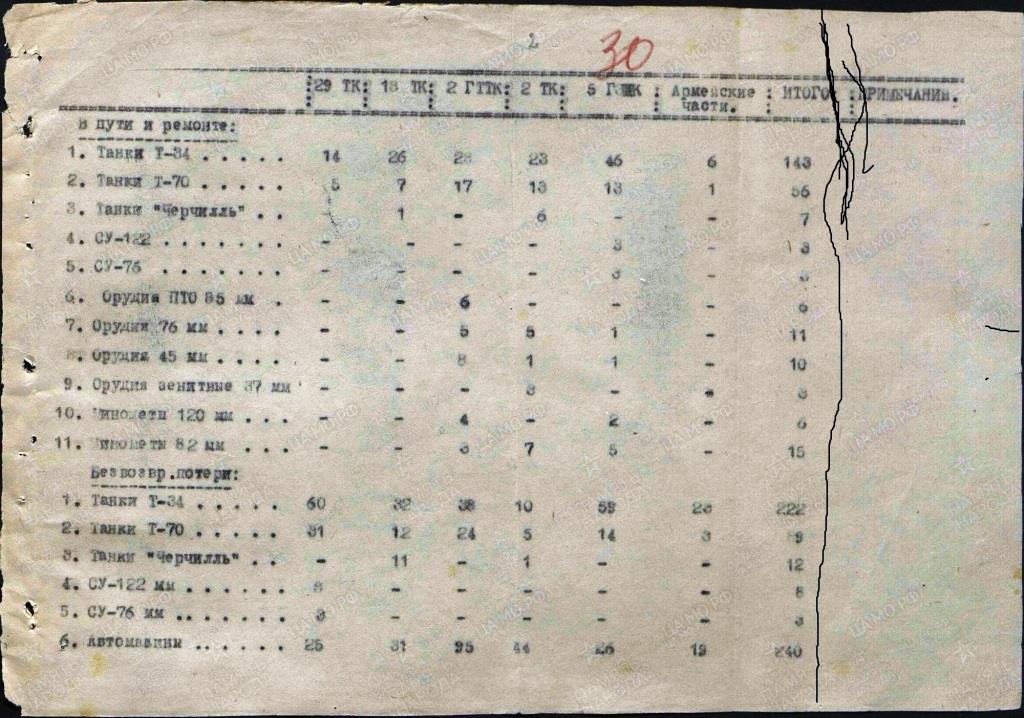 2 30
29 ТК: 18 ТК: 2 ГТТК: 2 ТК: 5 : Армейские части. : ИТОГО : ПРИМЕЧАНИЯ.
В пути и ремонте:
1. Танки Т-34 . . . . . 14 26 28 23 46 6 143
2. Танки Т-70 . . . . . 5 7 17 13 13 1 56
3. Танки "Черчилль" . . - 1 - 6 - - 7
4. СУ-122 . . . . . . . - - - - 3 - 3
5. СУ-76 . . . . . . . - - - - 3 - 3
6. Орудия ПТО 85 мм . - - 6 - - - 6
7. Орудия 76 мм . . . . - - 5 5 1 - 11
8. Орудия 45 мм . . . . - - 8 1 1 - 10
9. Орудия зенитные 37 мм - - - 3 - - 3
10. Минометы 120 мм . . . - - 4 - 2 - 6
11. Минометы 82 мм . . . - - 3 7 5 - 15
Безвозвр.потери:
1. Танки Т-34 . . . . . 60 32 38 10 59 23 222
2. Танки Т-70 . . . . . 31 12 24 5 14 3 89
3. Танки "Черчилль" . . - 11 - 1 - - 12
4. СУ-122 мм . . . . . . 8 - - - - - 8
5. СУ-76 мм . . . . . . . 3 - - - - - 3
6. Автомашины . . . . . . 25 31 95 44 26 19 240